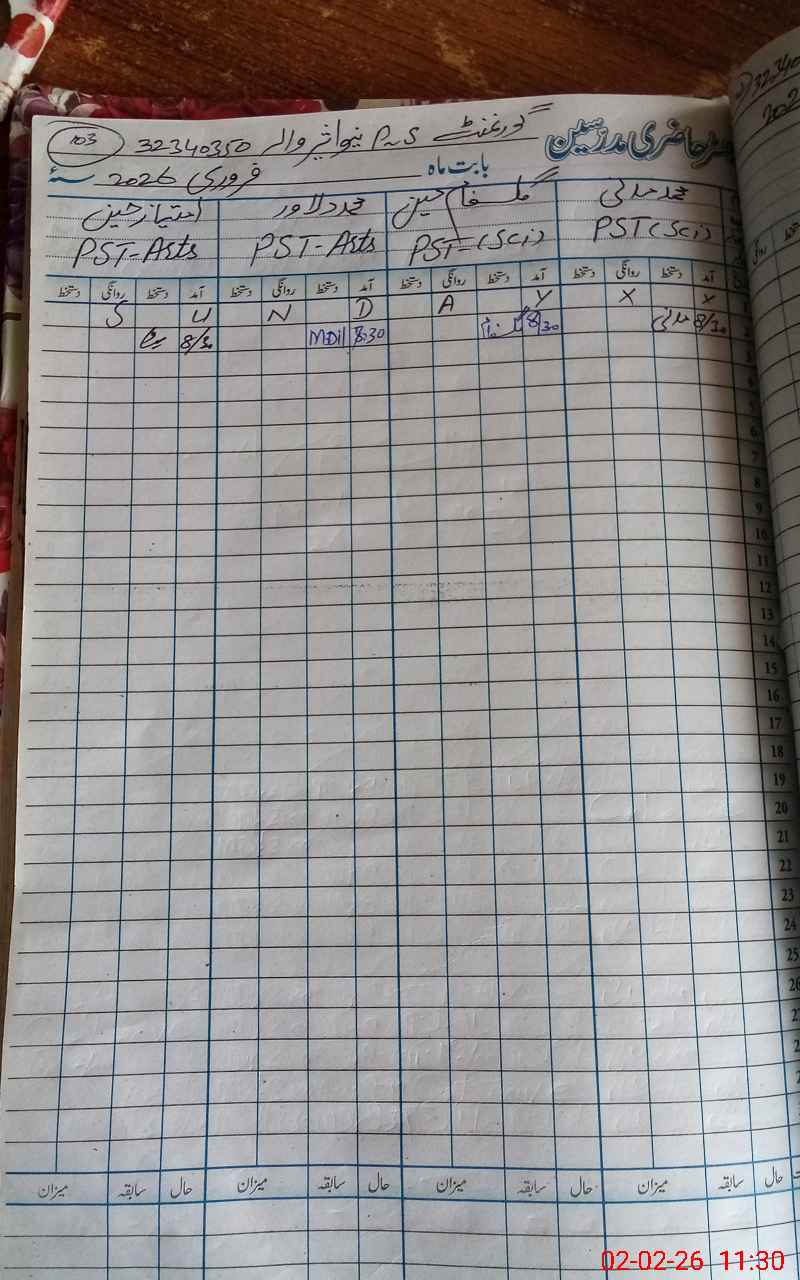 رجسٹر حاضری مدرسین گورنمنٹ P~S نیو اثیر والہ 32340350 103
بابت ماہ فروری 2026 سنہ
محمد مدنی گلفام حسین محمد دلاور امتیاز حسین
PST (Sci) PST-(Sci) PST-Asts PST-Asts
آمد دستخط روانگی دستخط آمد دستخط روانگی دستخط آمد دستخط روانگی دستخط آمد دستخط روانگی دستخط
S U N D A Y X X
8/30 مدنی 8/30 گلفام 8:30 M·Dil 8/30
4
5
6
7
8
9
10
11
12
13
14
15
16
17
18
19
20
21
22
23
24
25
حال سابقہ میزان حال سابقہ میزان حال سابقہ میزان حال سابقہ میزان
02-02-26 11:30